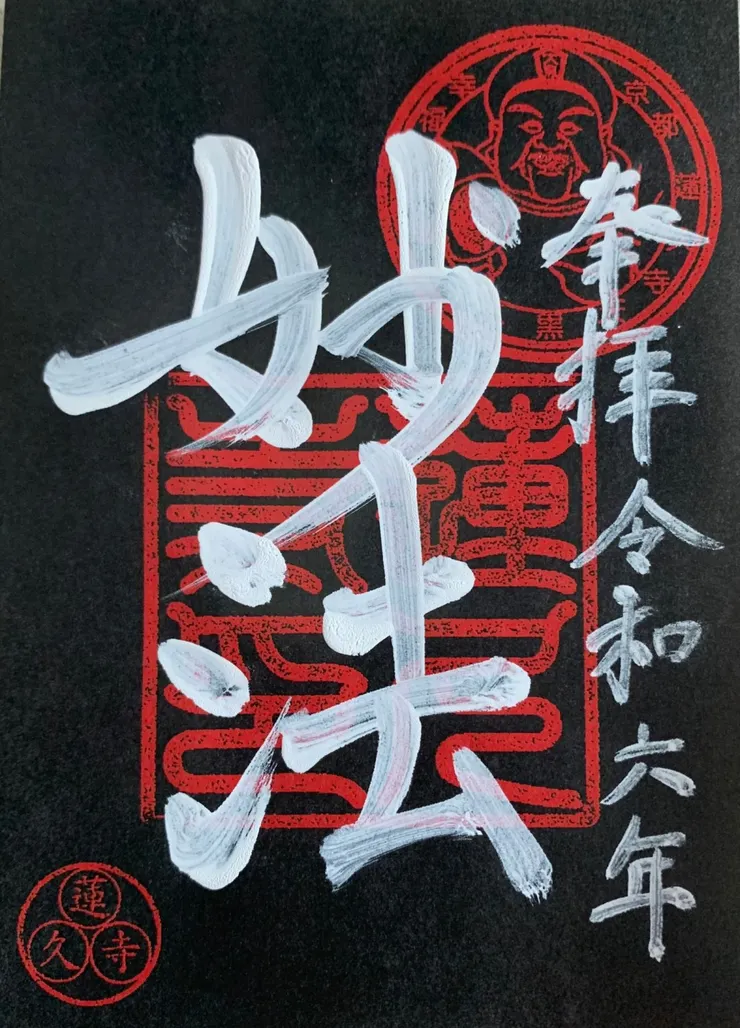 奉拝令和六年
妙法
京都蓮 寺
蓮久寺